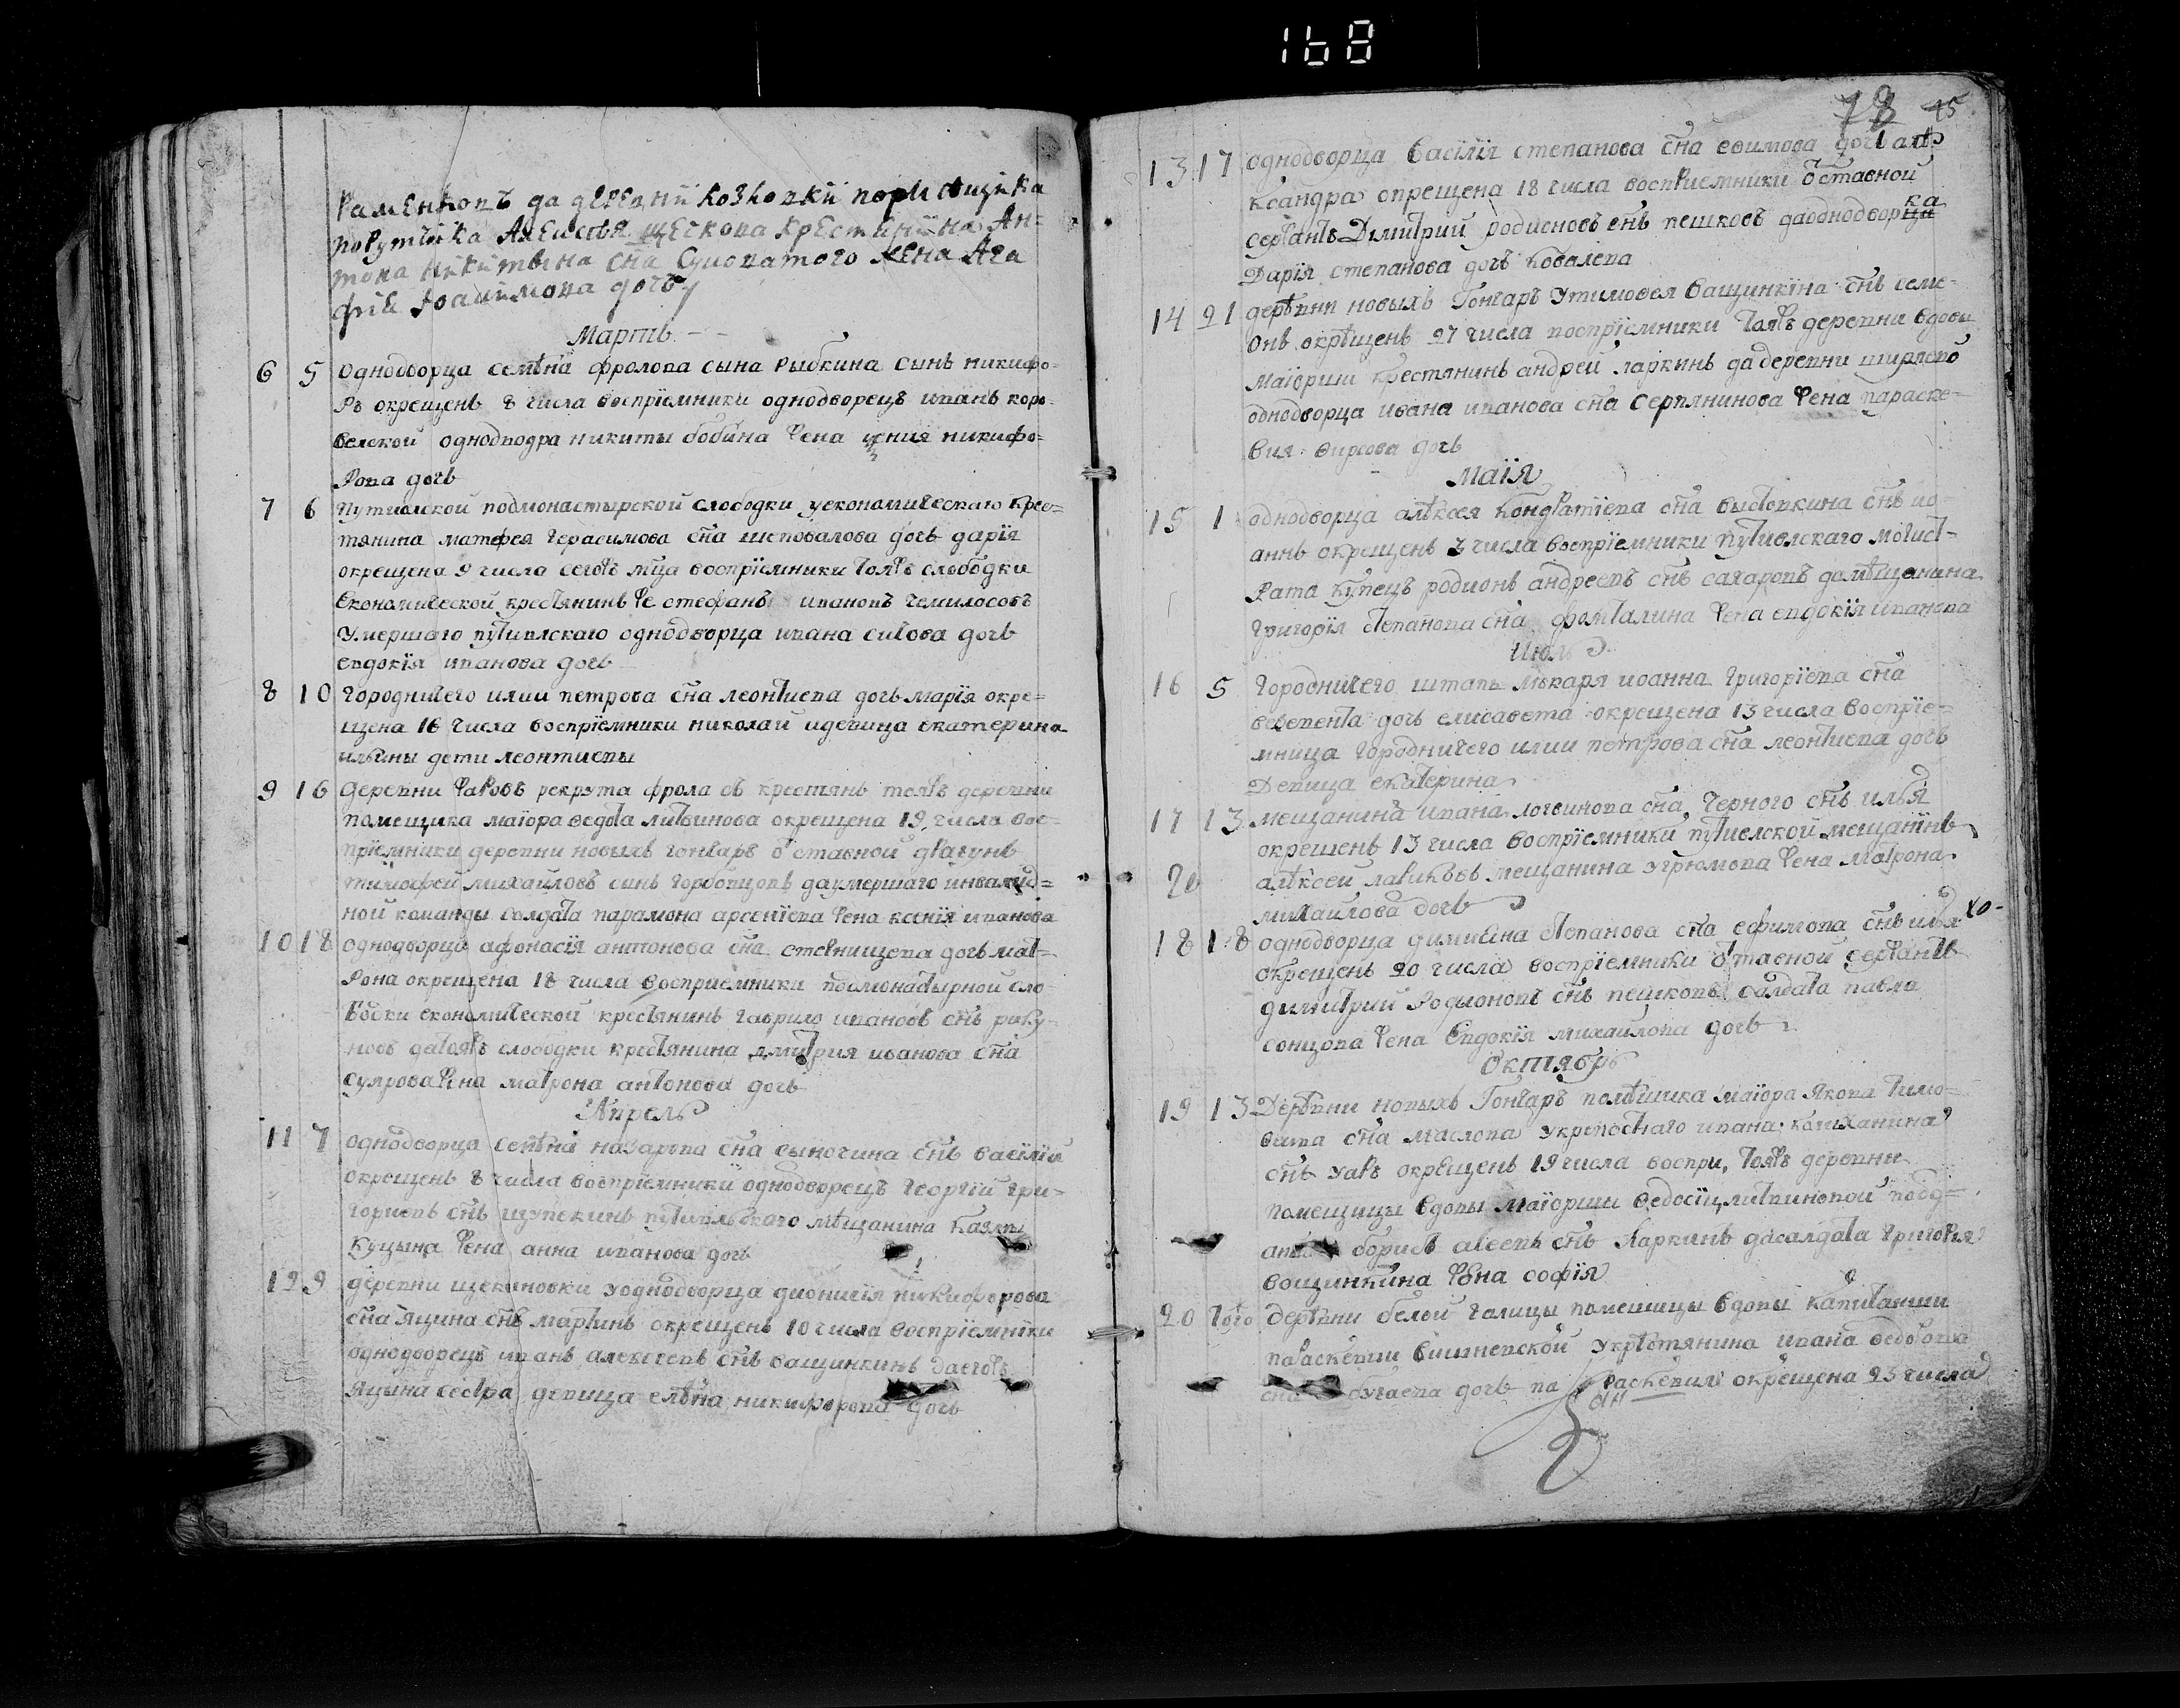 168
78 45
Раменкопъ да деревни Козловки порутщика
порутчика Алексѣя щескопа крестьянина Ан=
тона Никитьина сн҃а Суховатого жена Ага
фiя Iоакимова дочь
Мартъ
6 5 Однодворца семѣна фролопа сына Рыбкина сынъ никифо=
Ръ окрещенъ 8 числа воспрїемники однодворецъ ипанъ коро=
велской однодводра никиты бобина жена ксения никифо=
Ропа дочь
7 6 Путивлской подмонастырской слободки уекономическаго крес=
тянина матфея герасимова сн҃а шеповалова дочь дарїя
окрещена 9 числа сегожъ мц҃а воспрїемники тояжъ слободки
Економической крестянинъ же стефанъ ипанопъ чемилосовъ
Умершаго путивлскаго однодворца ипана ситова дочь
епдокїя ипанова дочь
8 10 городничего илии петрова сн҃а леонтиепа дочь марїя окре=
щена 16 числа воспрїемники николай идепица екатерина
ильины дети леонтиепы
9 16 деревни рекрута фрола съ крестянъ тояжъ деревни
помещика маiора ѳедота литвинова окрещена 19 числа вос=
прїемники деревни новыхъ гончаръ отставной драгунъ
тимофей михайловъ синъ горбопцопъ даумершаго инвалид=
ной команды солдата парамона арсенїепа жена ксенїя ипанова
10 18 однодворца афонасїя антонова сн҃а дочь мат=
Рона окрещена 18 числа восприемники подмонастырной сло
бодки економической крестянинъ гаврило ипановъ сн҃ъ рику=
новъ датояжъ слободки крестянина дмитрия иванова сн҃а
жена матрона антонова дочь
Апрель
11 7 однодворца семѣна назарьпа сн҃а сыночина сн҃ъ василїй
окрещенъ 8 числа воспрїемники однодворецъ георгїй гри=
гориепъ сн҃ъ щупекинъ путивльскаго мѣщанина
куцына жена анна ипанова дочь
12 9 деревни щекиновки уоднодворца дионисїя никифорова
сн҃а яцина сн҃ъ мартинъ окрещенъ 10 числа воспрїемники
однодворецъ ипанъ алексеепъ сн҃ъ ващинкинъ даегожъ
яцына сестра депица елѣна никифоропа дочь
13 17 однодворца василїя степанова сн҃а ефимова дочь алѣ
ксандра окрещена 18 числа восприемники отставной
сержантъ Димитрий родионовъ сн҃ъ пешковъ даоднодворка
Дарїя степанова дочь ковалепа
14 21 деревни новыхъ Гончаръ утимофея ващинкїна сн҃ъ семе=
онъ окрѣщенъ 27 числа поспрїемники тояжъ деревни вдовы
маiорши крестянинъ андрей ларкинъ да деревни
однодворца ивана ипанова сн҃а серпянинова жена параске=
вия ѳирсова дочь
Маїя
15 1 однодворца алѣксея кондратїепа сн҃а сн҃ъ ио=
аннъ окрещенъ 3 числа воспрїемники путивлскаго могист=
рата купецъ родионъ андреепъ сн҃ъ сахаропъ дамѣщанина
григорїя степанопа сн҃а жена епдокїя ипанопа
Июль
16 5 городничего штапъ лѣкаря иоанна григорїепа сн҃а
дочь елисавета окрещена 13 числа воспрїе=
мница городничего илии петрова сн҃а леонтиепа дочь
депица екатерина
17 13 мещанина ипана логвинопа сн҃а черного сн҃ъ илья
окрещенъ 13 числа воспрїемники путивлской мещанїнъ
20 алѣксей мещанина угрюмопа жена матрона
михайлова дочь
18 18 однодворца димияна степанова сн҃а ефимопа сн҃ъ илья
окрещенъ 20 числа воспрїемники отставной сержантъ
димитрий Родионопъ сн҃ъ пешкопъ салдата павла
сонцопа жена Епдокїя михайлопа дочь
Октябръ
19 13 Деревни новыхъ Гончаръ помѣщика маїора Якопа тимо=
ѳиепа сн҃а маслопа укрепостнаго ипана
сн҃ъ уаръ окрещенъ 19 числа воспри. тояжъ деревни
помещицы вдопы маїорши ѳедосїи литвинопой подд=
борисъ сн҃ъ Ларкинъ дасалдата григория
вощинкина жена софїя
20 того Деревни белой галицы помещицы вдопы капитанши
параскепии вишнепской укрѣстянина ипана
дочь параскепия окрещена 23 числа